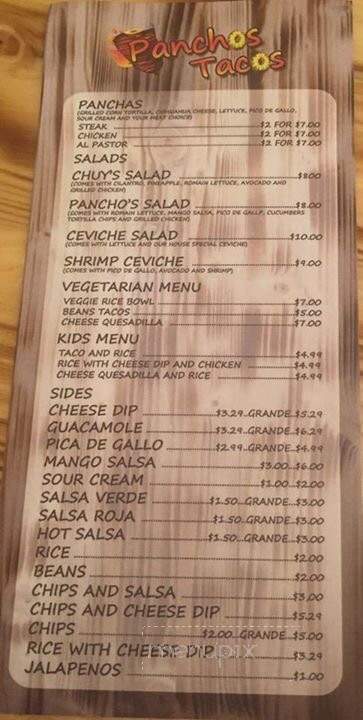 Panchos
Tacos
PANCHAS
(GRILLED CORN TORTILLA, CHIHUAHUA CHEESE, LETTUCE, PICO DE GALLO,
SOUR CREAM AND YOUR MEAT CHOICE)
STEAK $2 FOR $7.00
CHICKEN $2 FOR $7.00
AL PASTOR $2 FOR $7.00
SALADS
CHUY'S SALAD $8.00
(COMES WITH CILANTRO, PINEAPPLE, ROMAIN LETTUCE, AVOCADO AND
GRILLED CHICKEN)
PANCHO'S SALAD $8.00
(COMES WITH ROMAIN LETTUCE, MANGO SALSA, PICO DE GALLP, CUCUMBERS
TORTILLA CHIPS AND GRILLED CHICKEN)
CEVICHE SALAD $10.00
(COMES WITH LETTUCE AND OUR HOUSE SPECIAL CEVICHE)
SHRIMP CEVICHE $9.00
(COMES WITH PICO DE GALLO, AVOCADO AND SHRIMP)
VEGETARIAN MENU
VEGGIE RICE BOWL $7.00
BEANS TACOS $5.00
CHEESE QUESADILLA $7.00
KIDS MENU
TACO AND RICE $4.99
RICE WITH CHEESE DIP AND CHICKEN $4.99
CHEESE QUESADILLA AND RICE $4.99
SIDES
CHEESE DIP $3.29..GRANDE..$5.29
GUACAMOLE $3.29..GRANDE..$6.29
PICA DE GALLO $2.99..GRANDE..$4.99
MANGO SALSA $3.00...$6.00
SOUR CREAM $1.00...$2.00
SALSA VERDE $1.50..GRANDE...$3.00
SALSA ROJA $1.50..GRANDE...$3.00
HOT SALSA $1.50..GRANDE...$3.00
RICE $2.00
BEANS $2.00
CHIPS AND SALSA $3.00
CHIPS AND CHEESE DIP $5.29
CHIPS $2.00...GRANDE...$5.00
RICE WITH CHEESE DIP $3.29
JALAPENOS $1.00
menupix